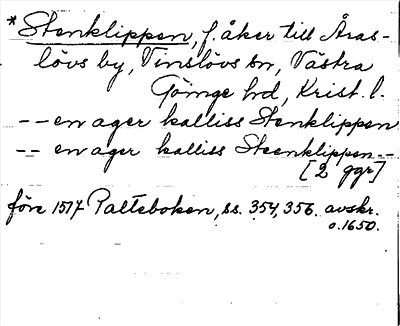 *Stenklippen, f. åker till Åras-
lövs by, Vinslövs sn, Västra
Göinge hd, Krist. l.
-- en ager kalliss Stenklippen
-- en ager kalliss Steenklippen --
[2 ggr]
före 1517 Palteboken, ss. 354, 356. avskr.
o. 1650.